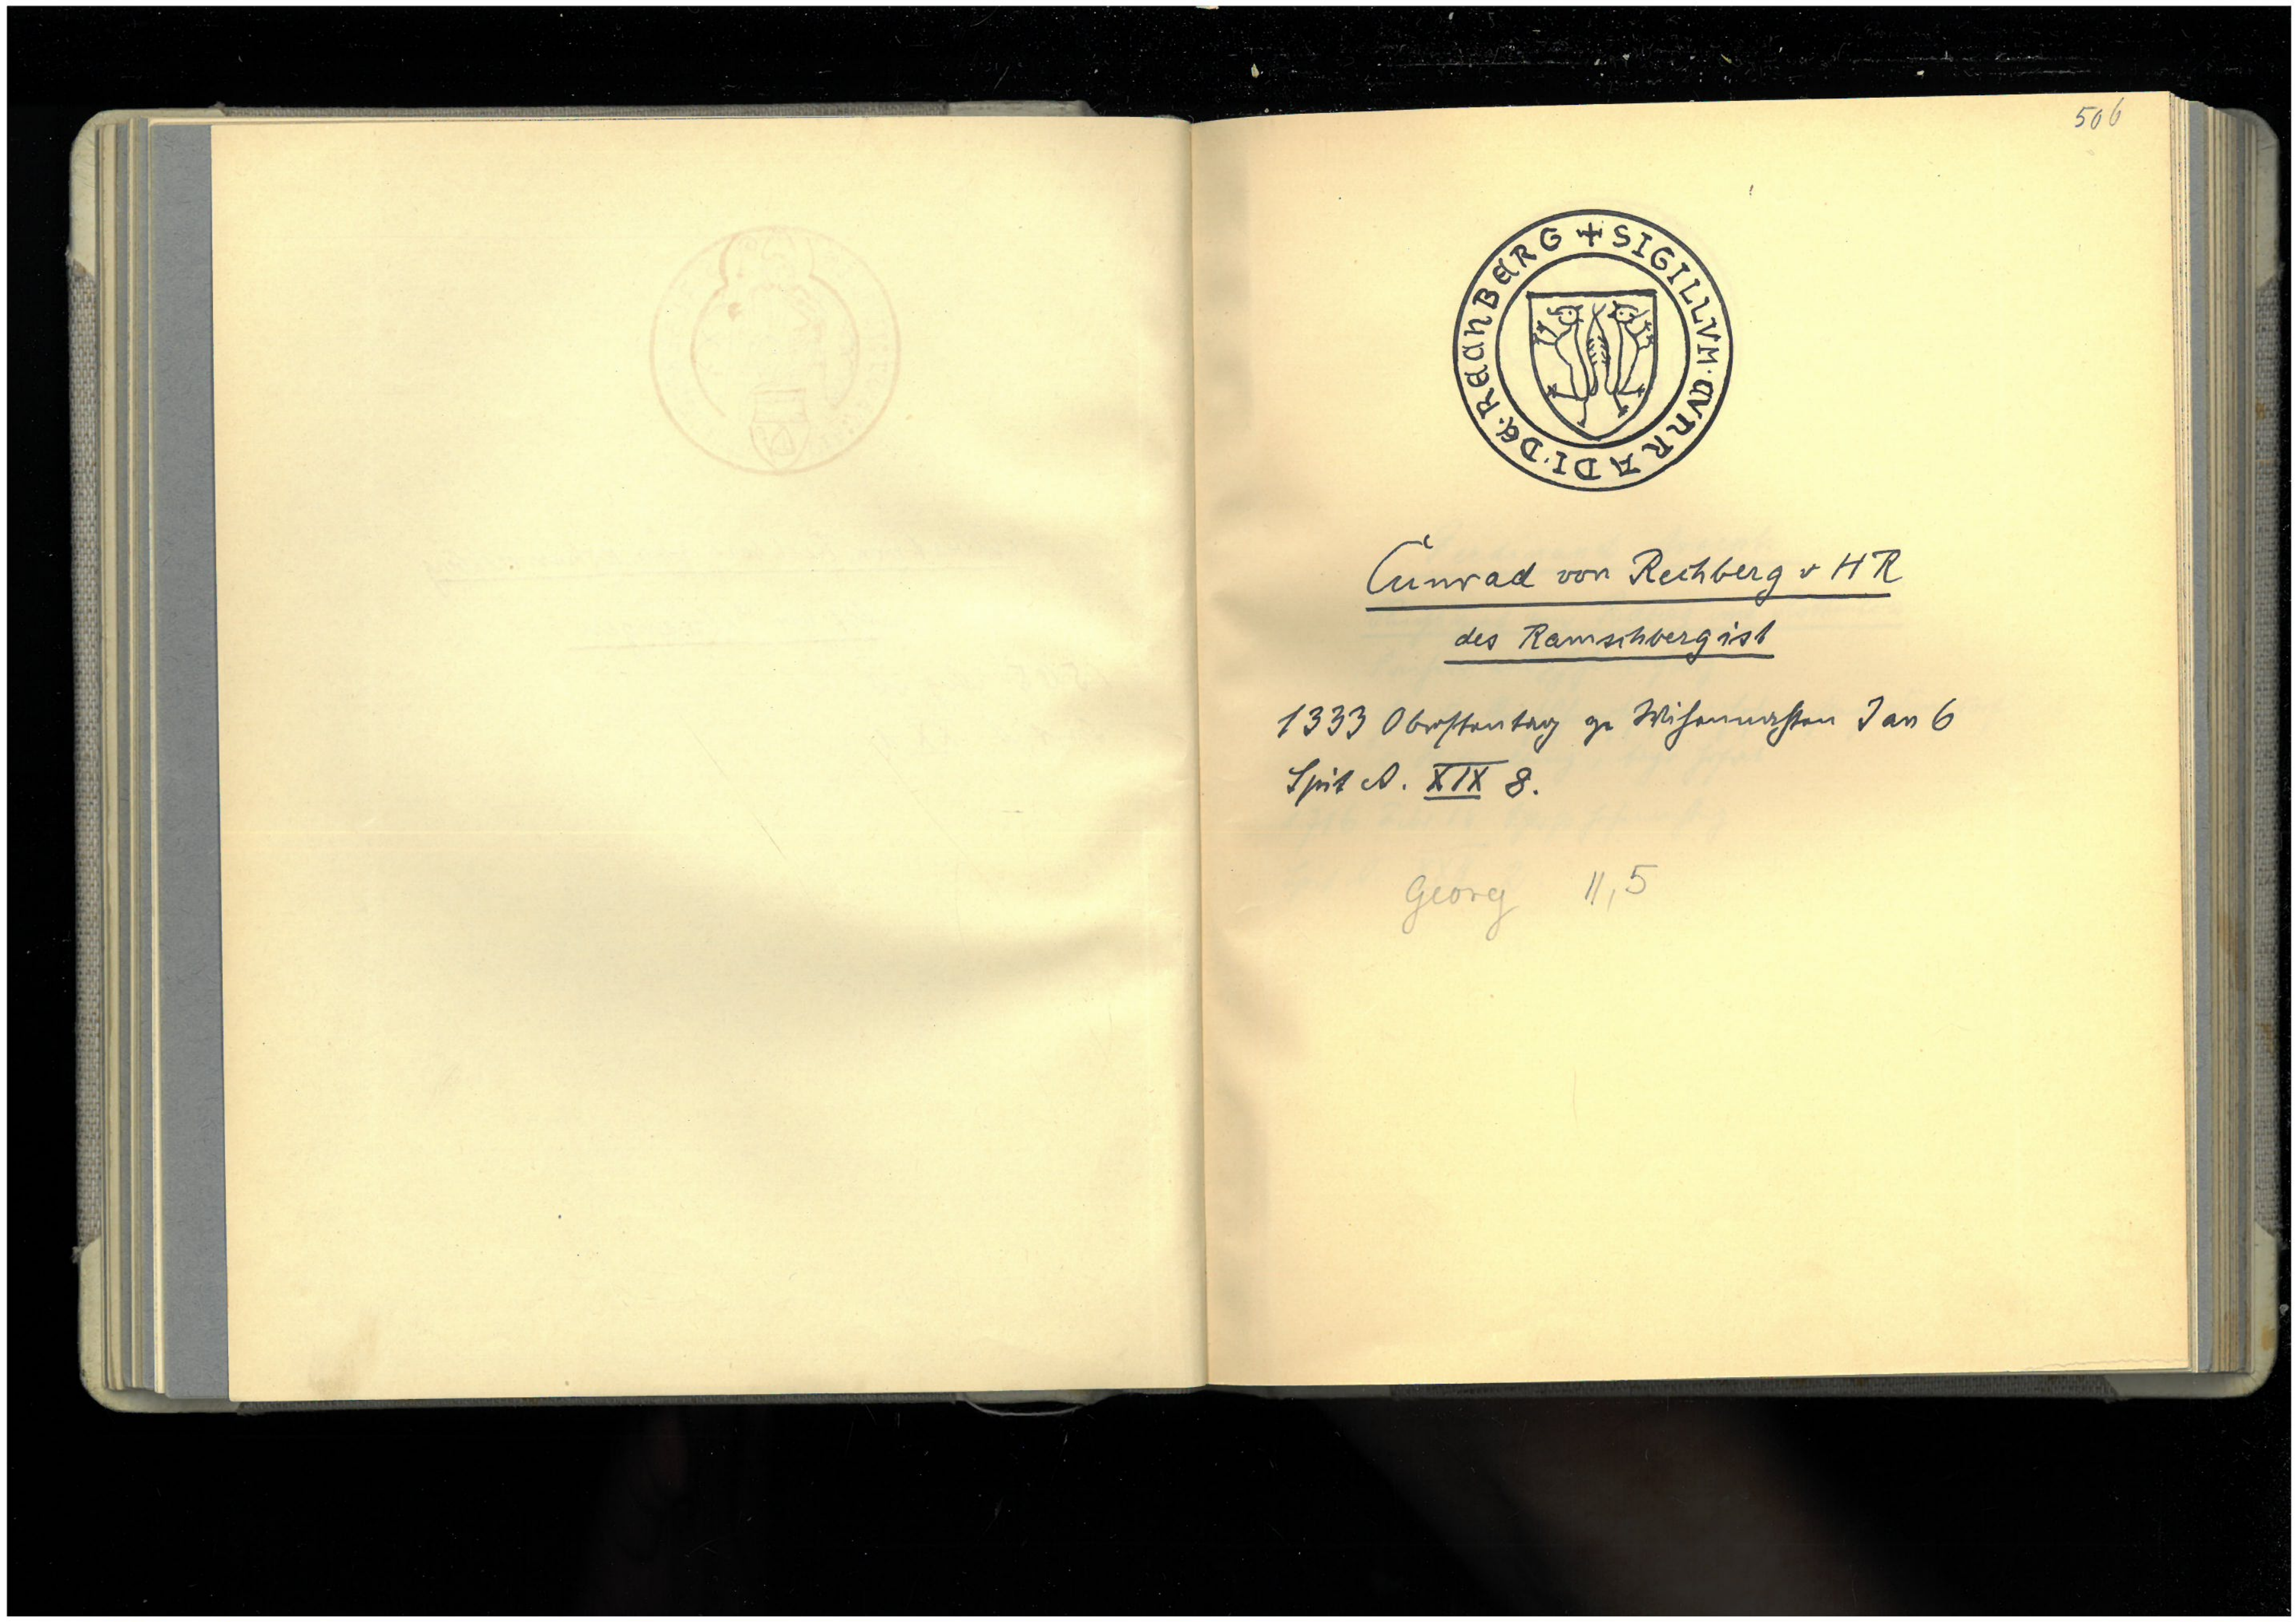 506
+ SIGILLVM · CVNRADI · DE · RECHBERG
Cunrad von Rechberg v HR
des Ramschberg ist
1333 Oberstentag ze Wihennachten Jan 6
Spit A. XIX 8.
Georg 11,5